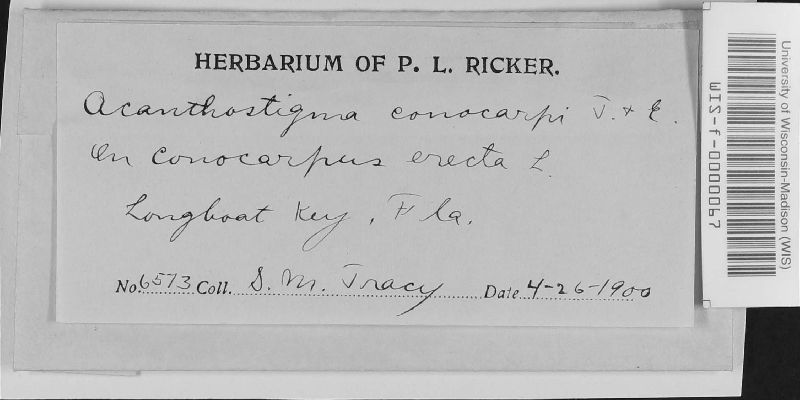 HERBARIUM OF P. L. RICKER.
Acanthostigma conocarpi T. & E.
On Conocarpus erecta L.
Longboat Key, Fla.
No. 6573 Coll. S. M. Tracy Date 4-26-1900
University of Wisconsin-Madison (WIS)
WIS-f-0000067